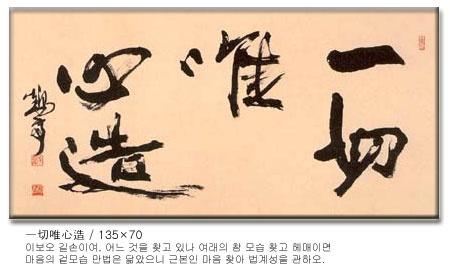 一切
唯
心造
一切唯心造 / 135×70
이보오 길손이여. 어느 것을 찾고 있나 여래의 참 모습 찾고 헤매이면
마음의 겉모습 만법은 닮았으니 근본인 마음 찾아 법계성을 관하오.